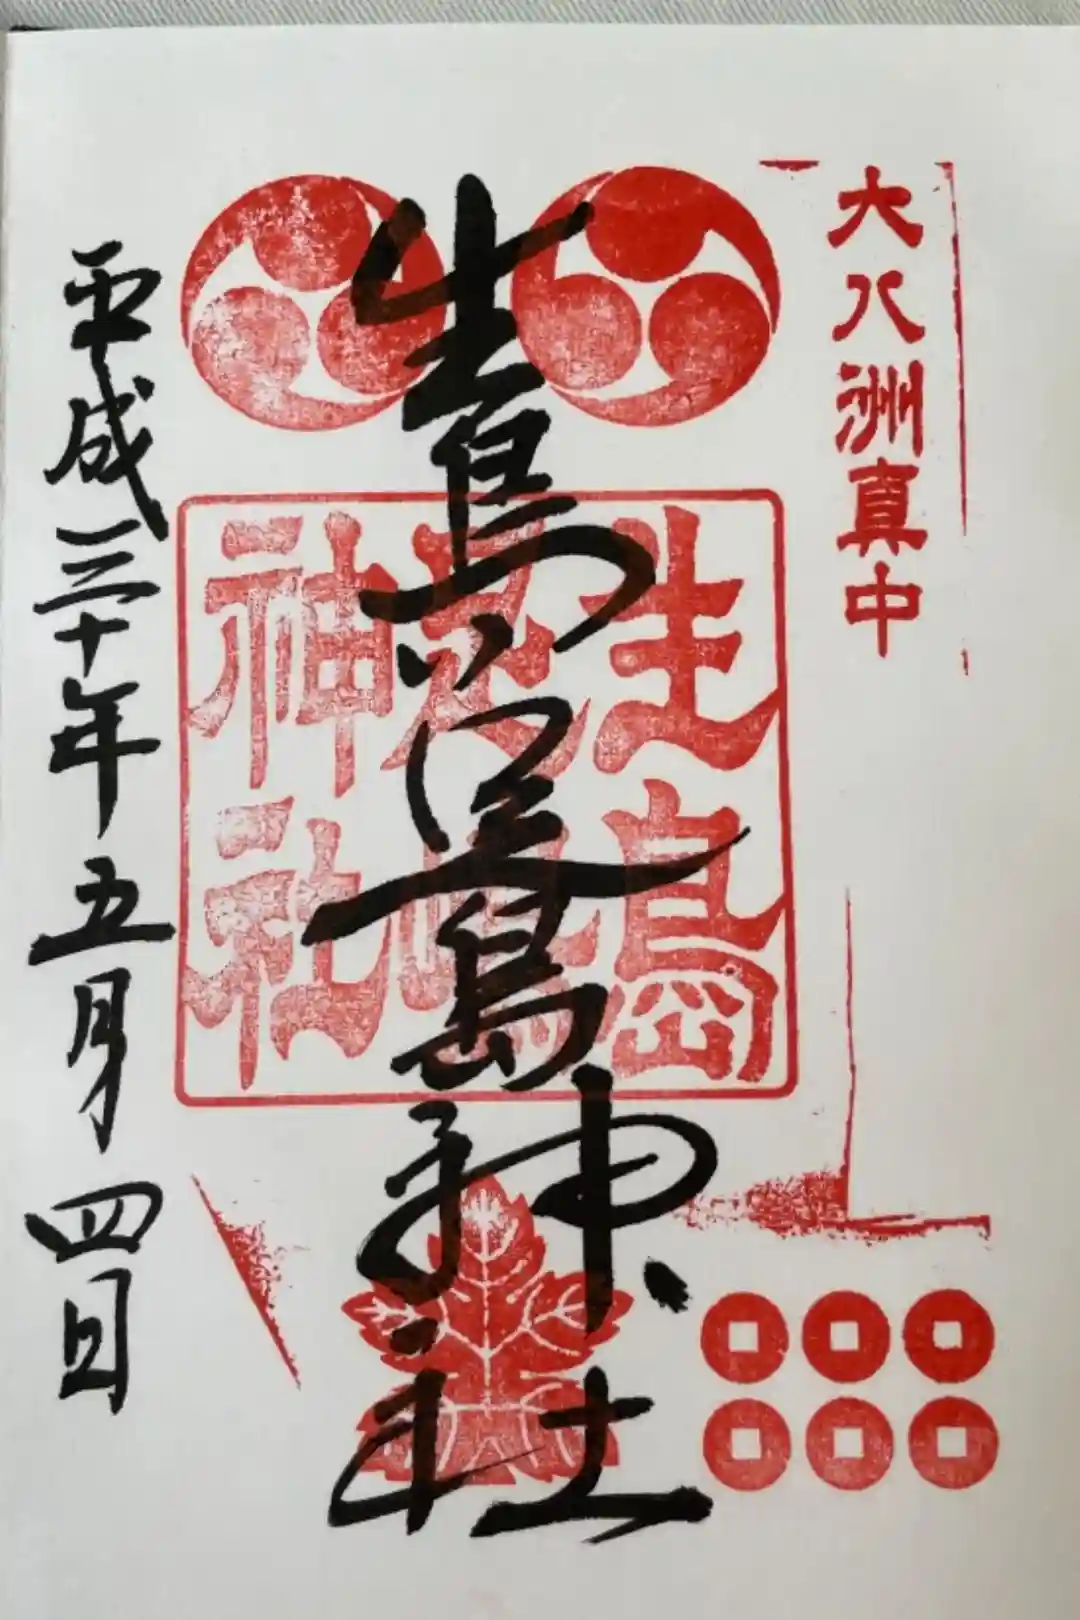 大八洲真中
生島足島神社
生島
足島
神社
平成三十年五月四日